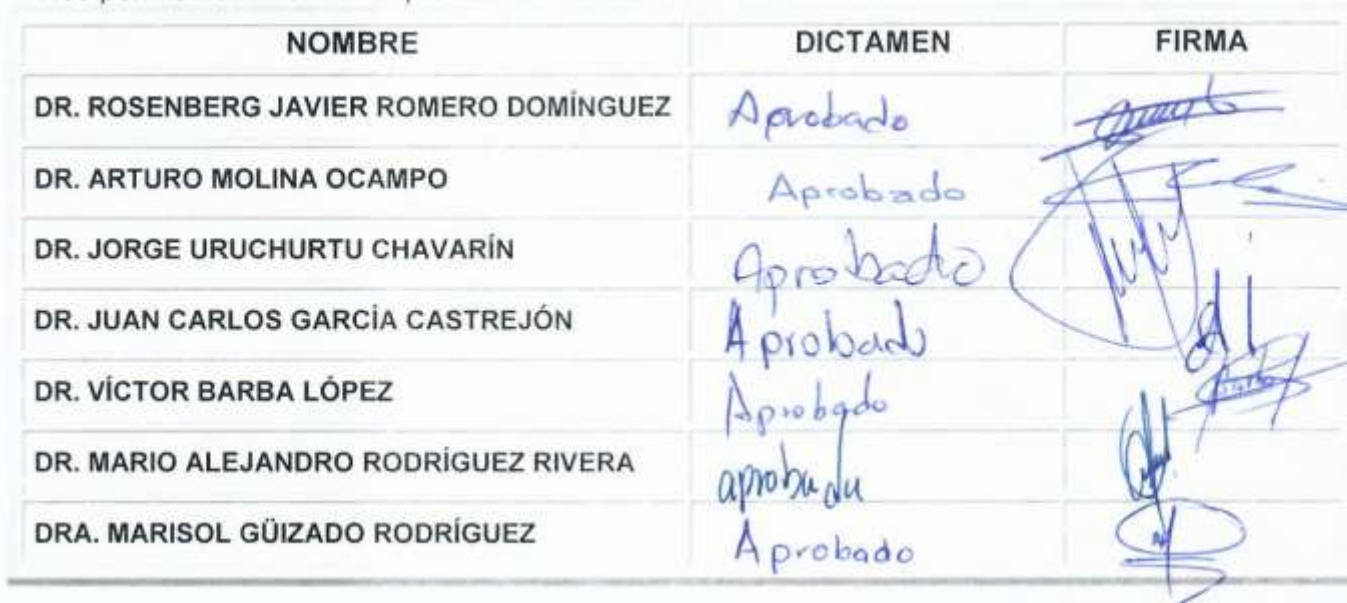 NOMBRE DICTAMEN FIRMA
DR. ROSENBERG JAVIER ROMERO DOMÍNGUEZ Aprobado
DR. ARTURO MOLINA OCAMPO Aprobado
DR. JORGE URUCHURTU CHAVARÍN Aprobado
DR. JUAN CARLOS GARCÍA CASTREJÓN Aprobado
DR. VÍCTOR BARBA LÓPEZ Aprobado
DR. MARIO ALEJANDRO RODRÍGUEZ RIVERA aprobada
DRA. MARISOL GÜIZADO RODRÍGUEZ Aprobado